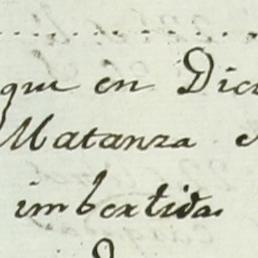 que en Dic
Matanza e
imbertida